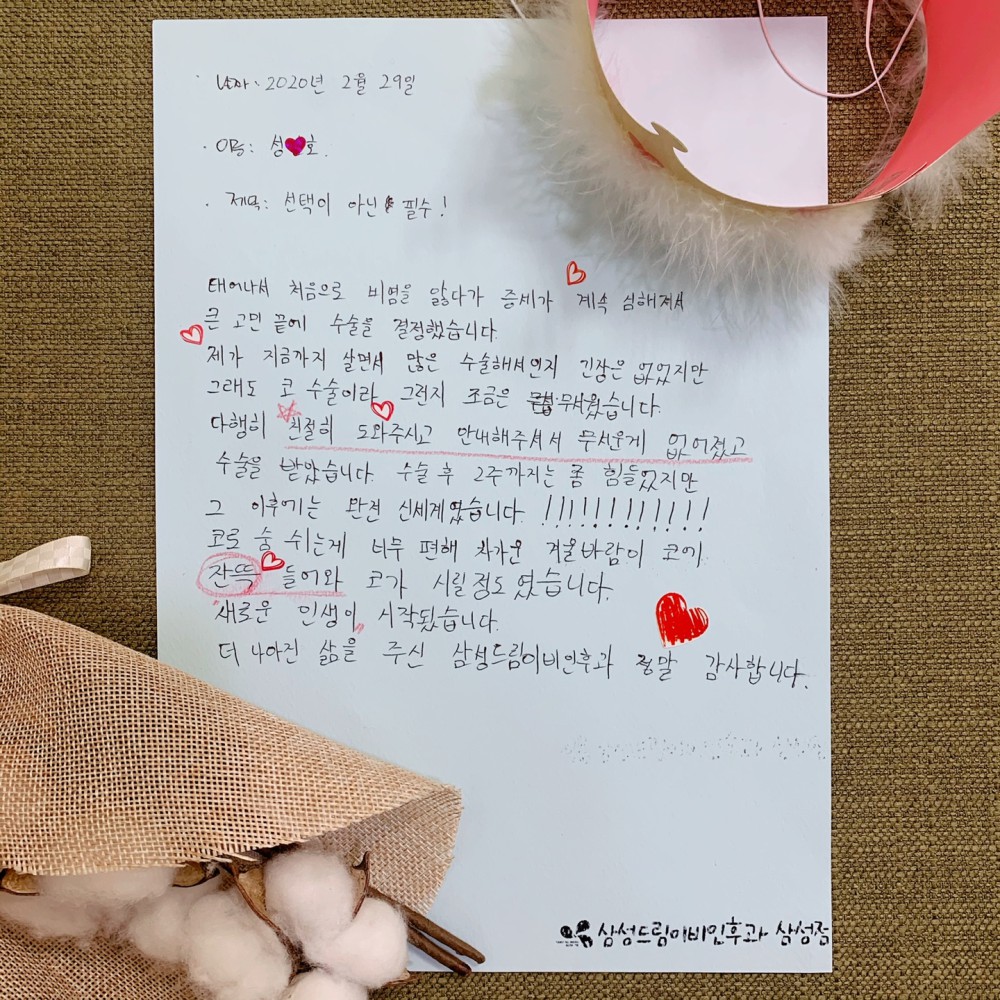 · 날짜: 2020년 2월 29일
· 이름: 성♥호.
· 제목: 선택이 아닌 필수!
태어나서 처음으로 비염을 앓다가 증세가 계속 심해져서
큰 고민 끝에 수술을 결정했습니다.
제가 지금까지 살면서 많은 수술해서인지 긴장은 없었지만
그래도 코 수술이라 그런지 조금은 무서웠습니다.
다행히 친절히 도와주시고 안내해주셔서 무서운게 없어졌고
수술을 받았습니다. 수술 후 2주까지는 좀 힘들었지만
그 이후에는 완전 신세계였습니다. !!!!!!!!!!!!
코로 숨 쉬는게 너무 편해 차가운 겨울바람이 코에
잔뜩 들어와 코가 시릴정도였습니다.
"새로운 인생이" 시작됐습니다.
더 나아진 삶을 주신 삼성드림이비인후과 정말 감사합니다.
삼성드림이비인후과 삼성점